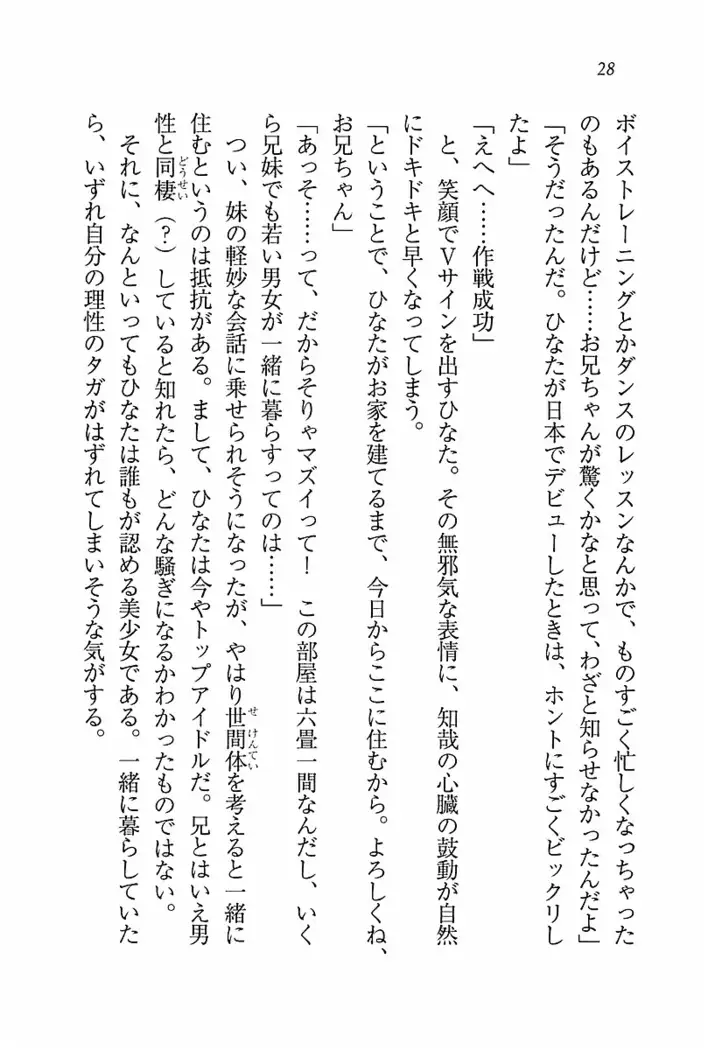 28
ボイストレーニングとかダンスのレッスンなんかで、ものすごく忙しくなっちゃった
のもあるんだけど……お兄ちゃんが驚くかなと思って、わざと知らせなかったんだよ」
「そうだったんだ。ひなたが日本でデビューしたときは、ホントにすごくビックリし
たよ」
「えへへ……作戦成功」
と、笑顔でVサインを出すひなた。その無邪気な表情に、知哉の心臓の鼓動が自然
にドキドキと早くなってしまう。
「ということで、ひなたがお家を建てるまで、今日からここに住むから。よろしくね、
お兄ちゃん」
「あっそ……って、だからそりゃマズイって！　この部屋は六畳一間なんだし、いく
ら兄妹でも若い男女が一緒に暮らすってのは……」
つい、妹の軽妙な会話に乗せられそうになったが、やはり世間体を考えると一緒に
せけんてい
住むというのは抵抗がある。まして、ひなたは今やトップアイドルだ。兄とはいえ男
性と同棲（？）していると知れたら、どんな騒ぎになるかわかったものではない。
どうせい
それに、なんといってもひなたは誰もが認める美少女である。一緒に暮らしていた
ら、いずれ自分の理性のタガがはずれてしまいそうな気がする。